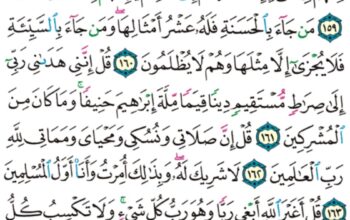 ١٥٩ مَن جَآءَ بِٱلْحَسَنَةِ فَلَهُۥ عَشْرُ أَمْثَالِهَا ۖ وَمَن جَآءَ بِٱلسَّيِّئَةِ
فَلَا يُجْزَىٰٓ إِلَّا مِثْلَهَا وَهُمْ لَا يُظْلَمُونَ ١٦٠ قُلْ إِنَّنِى هَدَىٰنِى رَبِّىٓ
إِلَىٰ صِرَٰطٍ مُّسْتَقِيمٍ دِينًا قِيَمًا مِّلَّةَ إِبْرَٰهِيمَ حَنِيفًا ۚ وَمَا كَانَ مِنَ
ٱلْمُشْرِكِينَ ١٦١ قُلْ إِنَّ صَلَاتِى وَنُسُكِى وَمَحْيَاىَ وَمَمَاتِى لِلَّهِ
رَبِّ ٱلْعَٰلَمِينَ ١٦٢ لَا شَرِيكَ لَهُۥ ۖ وَبِذَٰلِكَ أُمِرْتُ وَأَنَا۠ أَوَّلُ ٱلْمُسْلِمِينَ
١٦٣ قُلْ أَغَيْرَ ٱللَّهِ أَبْغِى رَبًّا وَهُوَ رَبُّ كُلِّ شَىْءٍ ۚ وَلَا تَكْسِبُ كُلُّ